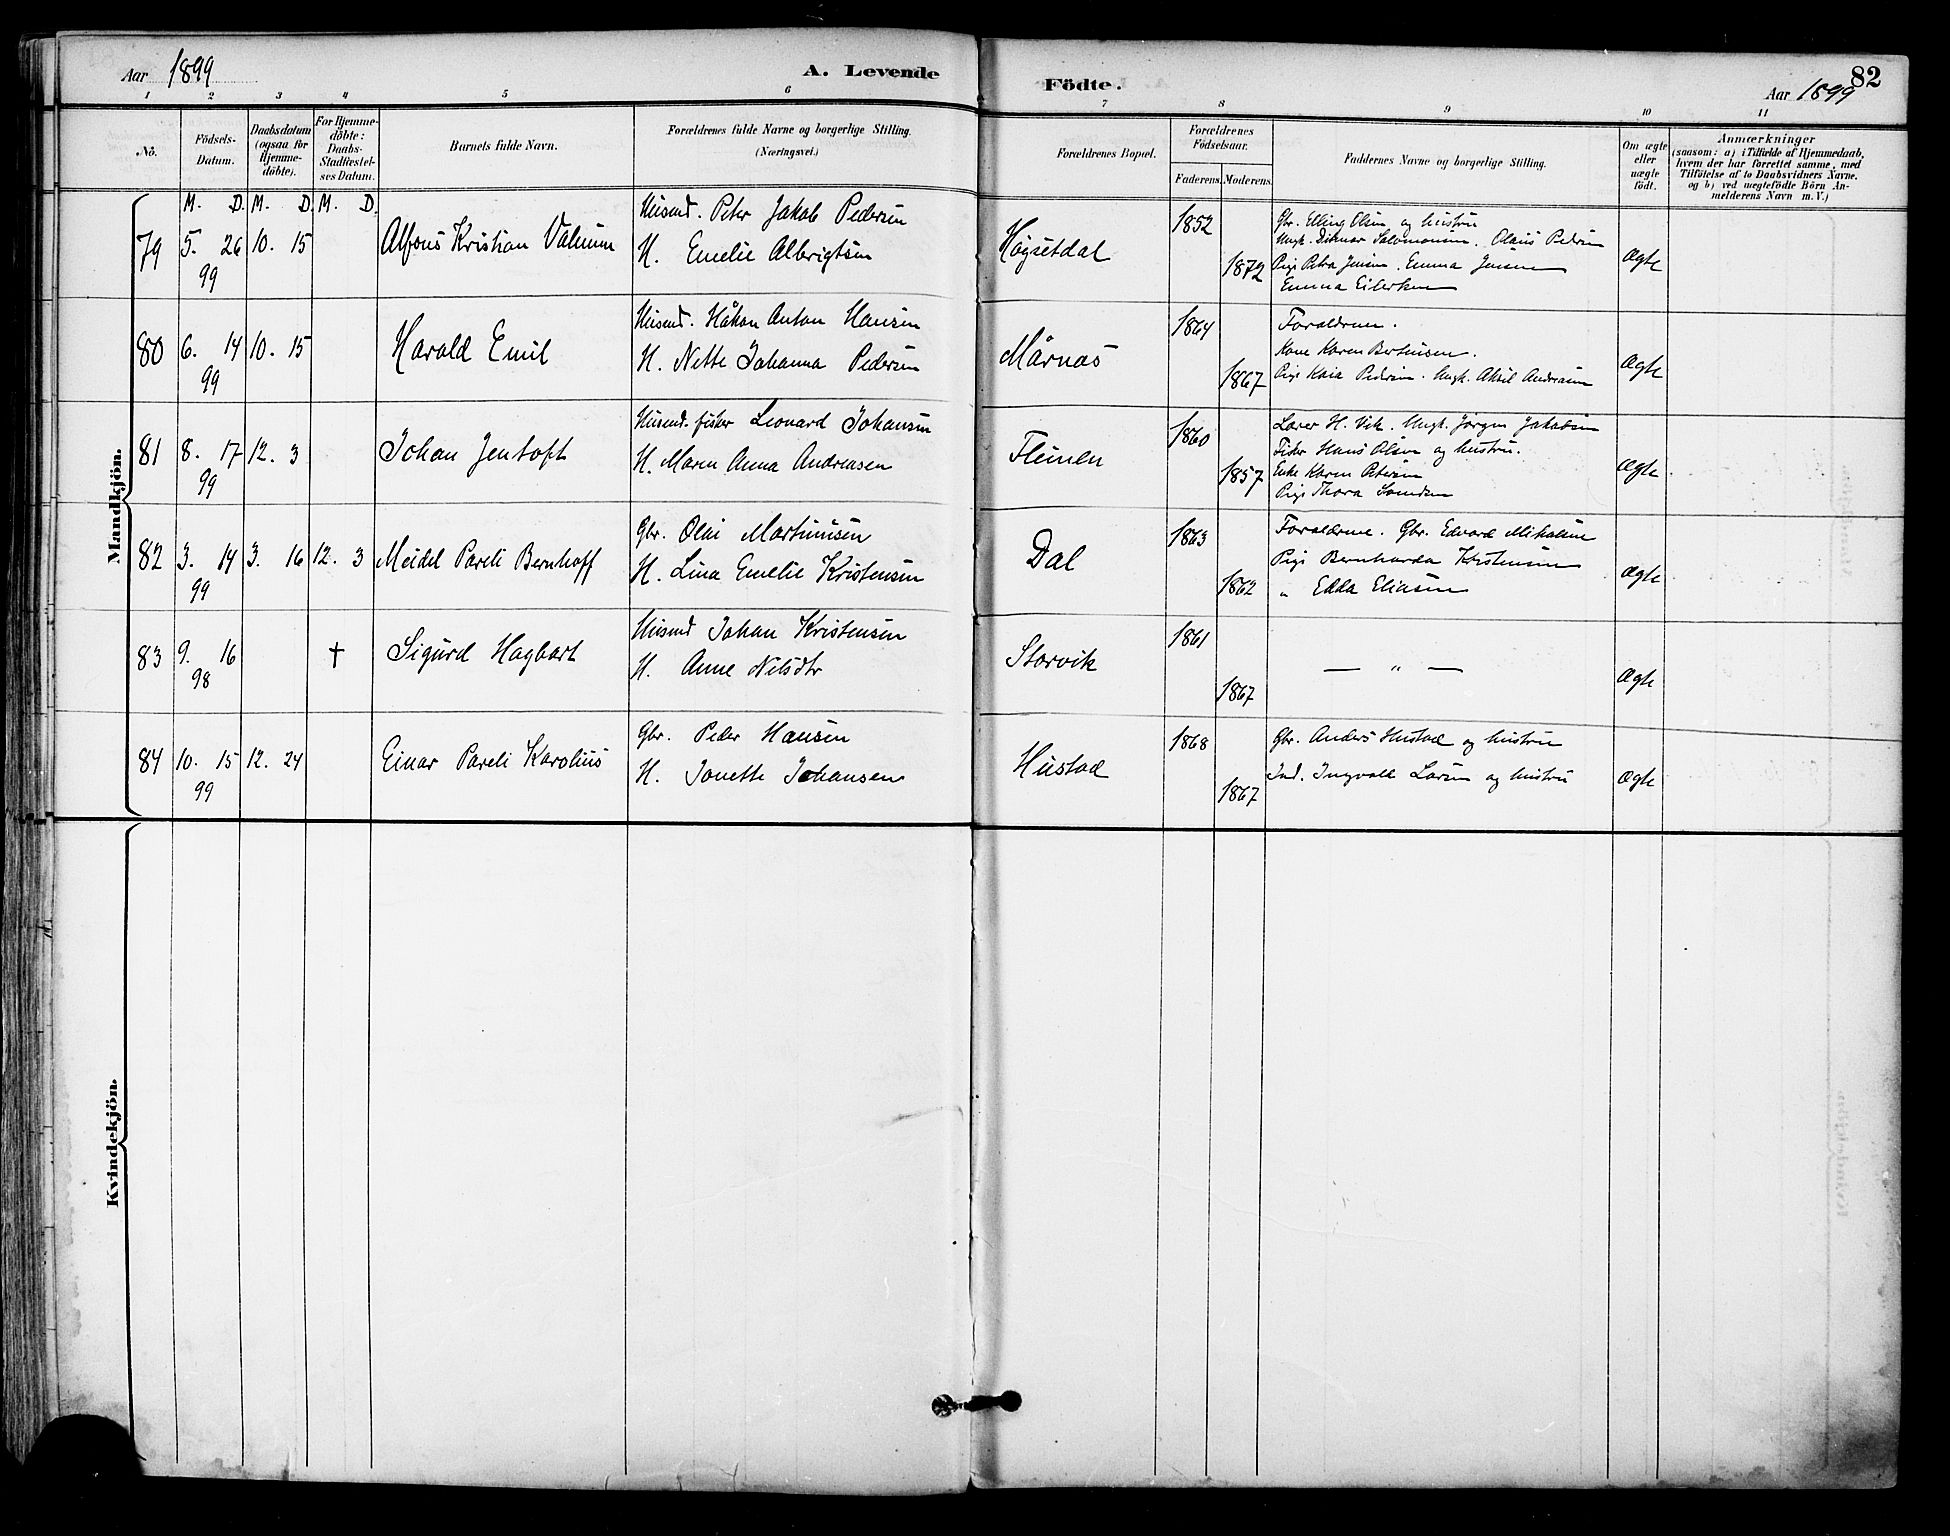 Aar 1899
A. Levende
Fødte.
82
Aar 1899
1 2 3 4 5 6 7 8 9 10 11
No.
Födsels-
Datum.
Daabsdatum
(ogsaa for
Hjemme-
döbte).
For Hjemme-
döbte:
Daabs-
Stadfæstel-
ses Datum.
Barnets fulde Navn.
Forældrenes fulde Navne og borgerlige Stilling.
(Næringsvei.)
Forældrenes Bopæl.
Forældrenes
Födselsaar.
Faderens. Moderens.
Faddernes Navne og borgerlige Stilling.
Om ægte
eller
uægte
født.
Anmærkninger
(saasom: a) i Tilfælde af Hjemmedaab,
hvem der har forrettet samme, med
Tilföielse af to Daabsvidners Navne,
og b) ved uægtefödte Börn An-
melderens Navn m. V.)
M. D. M. D. M. D.
Mandkjön.
79 5. 26 10. 15
99
Alfons Kristian
Husmd. Peter Jakob Pedersen
H. Emelie Albrigtsen
Høgsetdal
1852
1872
Gbr. Elling Olsen og hustru
Ungk. Ditmar Salomonsen. Olaus Pedersen
Pige Petra Jensen. Emma Jensen
Emma Eilertsen
Ægte
80 6. 14 10. 15
99
Harald Emil
Husmd. Håkon Anton Hansen
H. Nette Johanna Pedersen
Mårnæs
1864
1867
Forældrene.
Kone Karen Bertheusen.
Pige Kaia Pedersen. Ungk. Aksel Andreasen
Ægte
81 8. 17 12. 3
99
Johan Jentoft
Husmd. fisker Leonard Johansen
H. Maren Anna Andreasen
Fleinen
1860
1857
Lærer H. Vik. Ungk. Jørgen Jakobsen
Fisker Hans Olsen og hustru.
Enke Karen Petersen
Pige Thora
Ægte
82 3. 14 3. 16 12. 3
99
Meidel Pareli Bernhoff
Gbr. Olai Martinusen
H. Lina Emelie Kristensen
Dal
1863
1862
Forældrene. Gbr. Edvard Mikalsen
Pige Bernharda Kristensen
" Edda Eliasen
Ægte
83 9. 16 †
98
Sigurd Hagbart
Husmd Johan Kristensen
H. Anne Nilsdtr
Storvik
1861
1867
— " —
Ægte
84 10. 15 12. 24
99
Einar Pareli Karolius
Gbr. Peder Hansen
H. Jonette Johansen
Hustad
1868
1867
Gbr. Anders Hustad og hustru
Ind. Ingvald Larsen og hustru
Ægte
Kvindekjön.